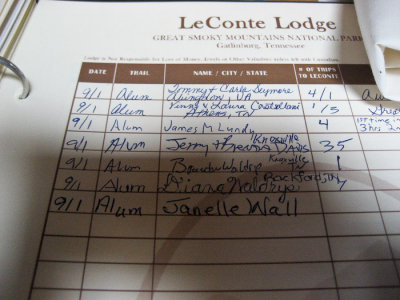 LeConte Lodge
GREAT SMOKY MOUNTAINS NATIONAL PARK
Gatlinburg, Tennessee
Lodge is Not Responsible for Loss of Money, Jewels or Other Valuables unless left with Custodian
DATE TRAIL NAME / CITY / STATE # OF TRIPS TO LECONTE
9/1 Alum Tommy & Carla Seymore 4/1
Abingdon, VA
9/1 Alum Kenny & Laura 1/3
Athens, TN
9/1 Alum James M Lundy 4
9/1 Alum Jerry + Davis Knoxville 35
9/1 Alum Waldrop Knoxville TN 1
9/1 Alum Diane Waldrop Rockford, TN
9/1 Alum Janelle Wall